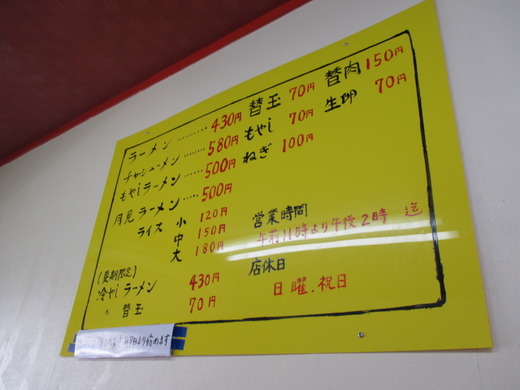 ラーメン ……… 430円 替玉 70円 替肉 150円
チャシューメン …… 580円 もやし 70円 生卵 70円
もやしラーメン …… 500円 ねぎ 100円
月見ラーメン …… 500円
ライス 小 120円
中 150円
大 180円
営業時間
午前11時より午後2時 迄
店休日
日曜.祝日
(夏期限定)
冷やしラーメン 430円
〃 替玉 70円
より始めます